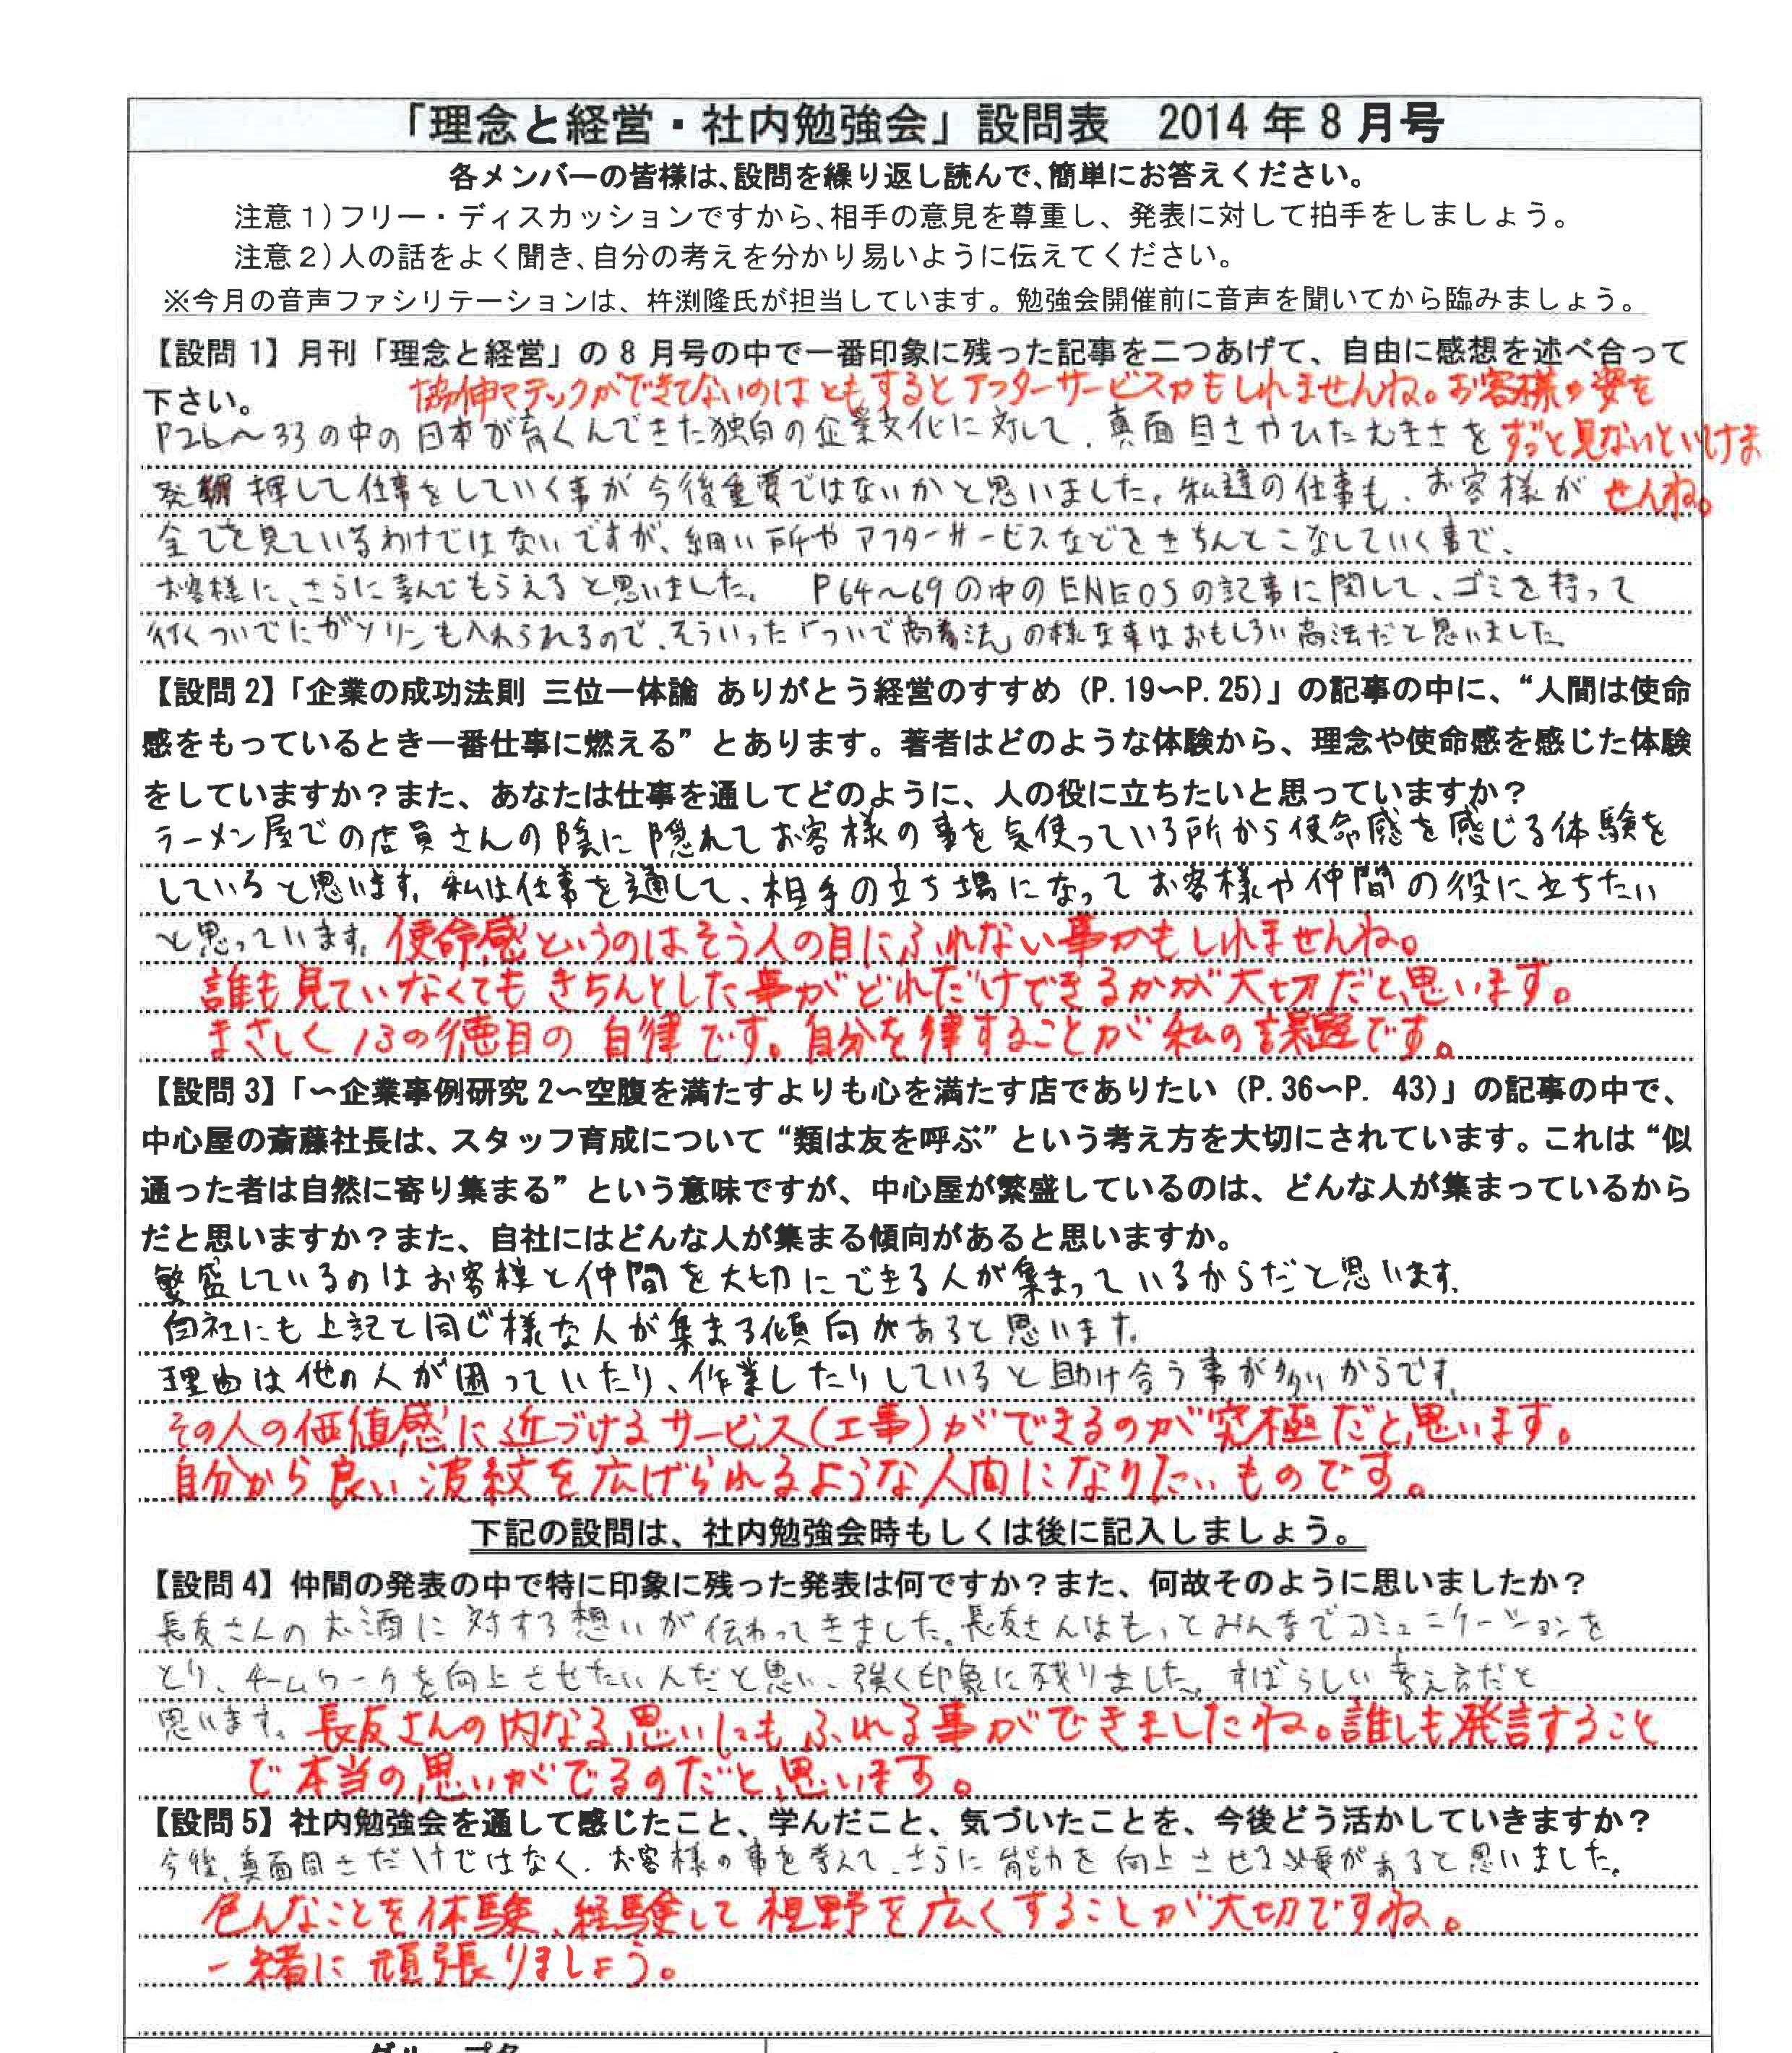 「理念と経営・社内勉強会」設問表　2014年8月号
各メンバーの皆様は、設問を繰り返し読んで、簡単にお答えください。
注意1）フリー・ディスカッションですから、相手の意見を尊重し、発表に対して拍手をしましょう。
注意2）人の話をよく聞き、自分の考えを分かり易いように伝えてください。
※今月の音声ファシリテーションは、杵渕隆氏が担当しています。勉強会開催前に音声を聞いてから臨みましょう。
【設問1】月刊「理念と経営」の8月号の中で一番印象に残った記事を二つあげて、自由に感想を述べ合って
下さい。
協伸マテックができてないのはともするとアフターサービスかもしれませんね。お客様の姿を
ずっと見ないといけま
せんね。
P26～33の中の日本が育くんできた独自の企業文化に対して、真面目さやひたむきさを
発揮して仕事をしていく事が今後重要ではないかと思いました。私達の仕事も、お客様が
全てを見ているわけではないですが、細い所やアフターサービスなどをきちんとこなしていく事で、
お客様に、さらに喜んでもらえると思いました。　P64～69の中のENEOSの記事に関して、ゴミを持って
行くついでにガソリンも入れられるので、そういった「ついで商売法」の様な事はおもしろい商法だと思いました。
【設問2】「企業の成功法則 三位一体論 ありがとう経営のすすめ（P.19～P.25）」の記事の中に、“人間は使命
感をもっているとき一番仕事に燃える”とあります。著者はどのような体験から、理念や使命感を感じた体験
をしていますか？また、あなたは仕事を通してどのように、人の役に立ちたいと思っていますか？
ラーメン屋での店員さんの陰に隠れてお客様の事を気使っている所から使命感を感じる体験を
していると思います。私は仕事を通して、相手の立ち場になってお客様や仲間の役に立ちたい
と思っています。使命感というのはそう人の目にふれない事かもしれませんね。
誰も見ていなくてもきちんとした事がどれだけできるかが大切だと思います。
まさしく13の徳目の自律です。自分を律することが私の課題です。
【設問3】「～企業事例研究2～空腹を満たすよりも心を満たす店でありたい（P.36～P. 43）」の記事の中で、
中心屋の斎藤社長は、スタッフ育成について“類は友を呼ぶ”という考え方を大切にされています。これは“似
通った者は自然に寄り集まる”という意味ですが、中心屋が繁盛しているのは、どんな人が集まっているから
だと思いますか？また、自社にはどんな人が集まる傾向があると思いますか。
繁盛しているのはお客様と仲間を大切にできる人が集まっているからだと思います。
自社にも上記と同じ様な人が集まる傾向があると思います。
理由は他の人が困っていたり、作業したりしていると助け合う事が多いからです。
その人の価値感に近づけるサービス（工事）ができるのが究極だと思います。
自分から良い波紋を広げられるような人間になりたいものです。
下記の設問は、社内勉強会時もしくは後に記入しましょう。
【設問4】仲間の発表の中で特に印象に残った発表は何ですか？また、何故そのように思いましたか？
長友さんのお酒に対する想いが伝わってきました。長友さんはもっとみんなでコミュニケーションを
とり、チームワークを向上させたいんだと思い、強く印象に残りました。すばらしい考え方だと
思います。長友さんの内なる思いにもふれる事ができましたね。誰しも発言すること
で本当の思いがでるのだと思います。
【設問5】社内勉強会を通して感じたこと、学んだこと、気づいたことを、今後どう活かしていきますか？
今後、真面目さだけではなく、お客様の事を考えて、さらに能力を向上させる必要があると思いました。
色んなことを体験、経験して視野を広くすることが大切ですね。
一緒に頑張りましょう。